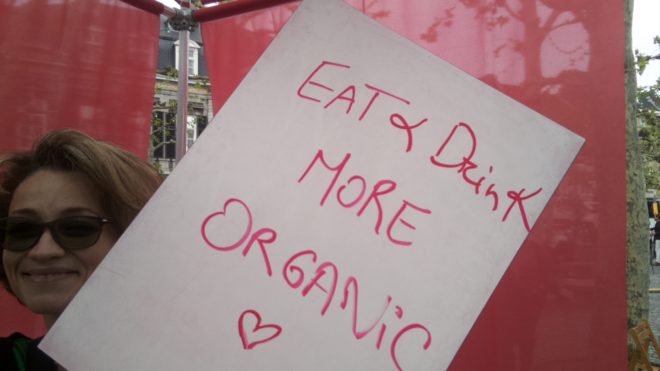 EAT & DRINK
MORE
ORGANIC
♡